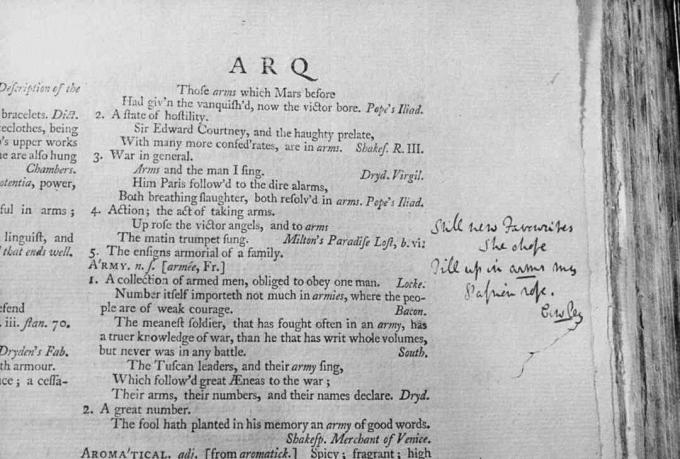 ARQ
Description of the
bracelets. Dict.
eclothes, being
's upper works
ne are also hung
Chambers.
otentia, power,
ful in arms;
linguist, and
that ends well.
efend
. iii. stan. 70.
Dryden's Fab.
th armour.
ce; a cessa-
Thoſe arms which Mars before
Had giv'n the vanquiſh'd, now the victor bore. Pope's Iliad.
2. A ſtate of hoſtility.
Sir Edward Courtney, and the haughty prelate,
With many more confed'rates, are in arms. Shakeſ. R. III.
3. War in general.
Arms and the man I ſing. Dryd. Virgil.
Him Paris follow'd to the dire alarms,
Both breathing ſlaughter, both reſolv'd in arms. Pope's Iliad.
4. Action; the act of taking arms.
Up roſe the victor angels, and to arms
The matin trumpet ſung. Milton's Paradiſe Loſt, b. vi:
5. The enſigns armorial of a family.
A'RMY. n. ſ. [armée, Fr.]
1. A collection of armed men, obliged to obey one man. Locke.
Number itſelf importeth not much in armies, where the peo-
ple are of weak courage. Bacon.
The meaneſt ſoldier, that has fought often in an army, has
a truer knowledge of war, than he that has writ whole volumes,
but never was in any battle. South.
The Tuſcan leaders, and their army ſing,
Which follow'd great Æneas to the war;
Their arms, their numbers, and their names declare. Dryd.
2. A great number.
The fool hath planted in his memory an army of good words.
Shakeſp. Merchant of Venice.
AROMA'TICAL. adj. [from aromatick.] Spicy; fragrant; high
Still new Favourites
She choſe
Till up in arms my
Paſsion roſe.
Cowley